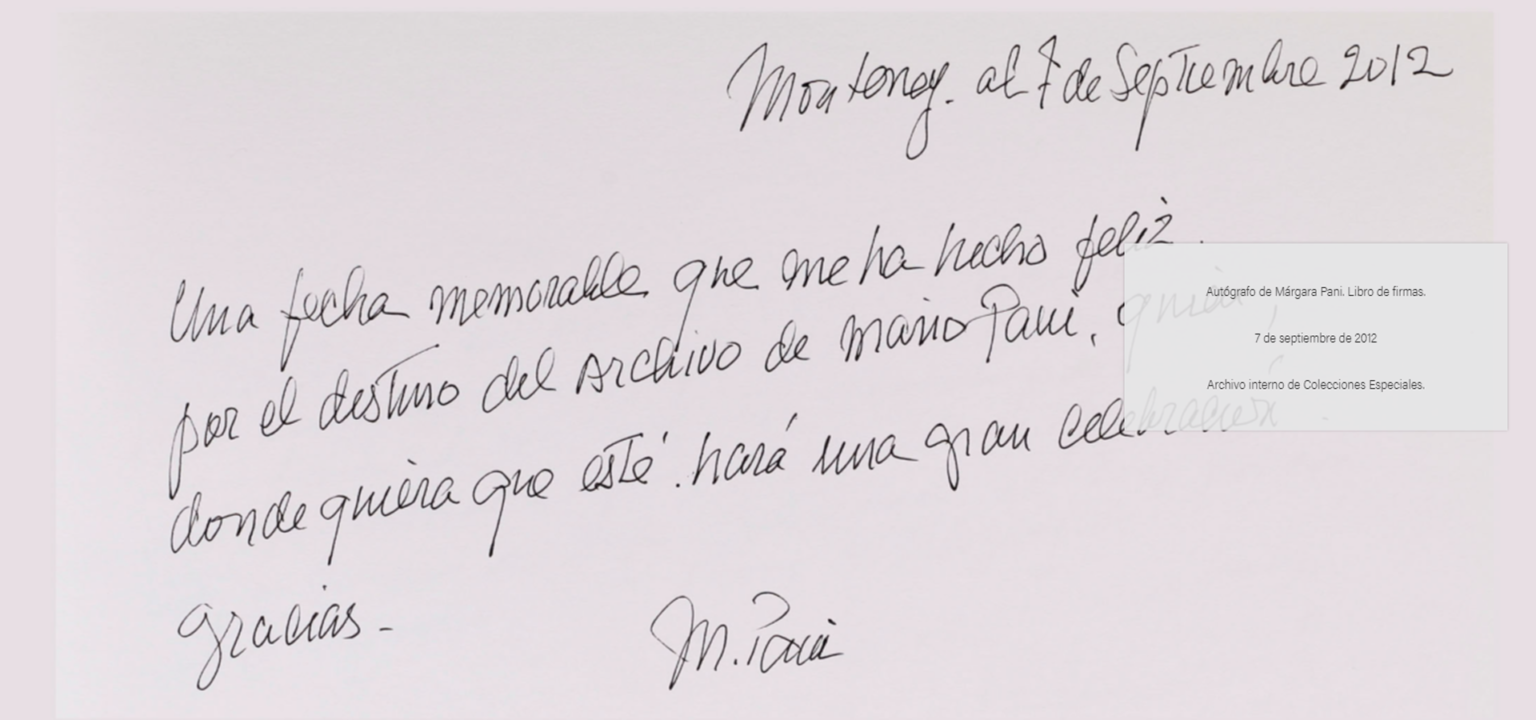 Monterrey. al 7 de Septiembre 2012
Una fecha memorable que me ha hecho feliz.
por el destino del Archivo de Mario Pani, quién,
donde quiera que esté. hará una gran celebración.
gracias -
M. Pani
Autógrafo de Márgara Pani. Libro de firmas.
7 de septiembre de 2012
Archivo interno de Colecciones Especiales.